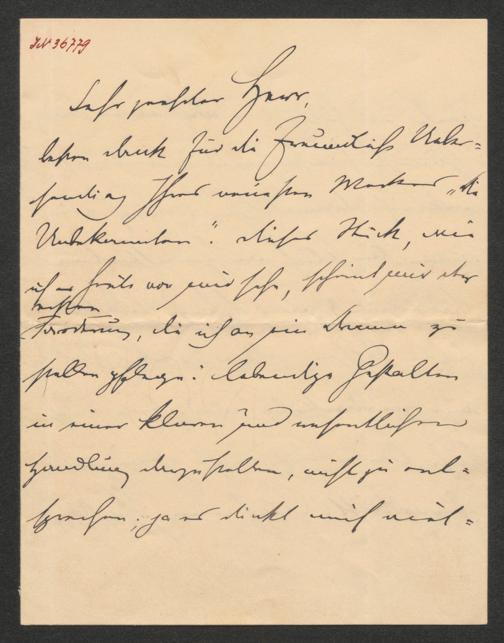 IN 36779
Sehr geehrter Herr,
besten Dank für die freundliche Ueber-
sendung Ihres neuesten Werkes „die
Unbekannten“. Dieses Stück, wie
ich es heute vor mir sehe, scheint mir der
ersten
Forderung, die ich an ein Drama zu
stellen pflege: lebendige Gestalten
in einer klaren und wesentlichen
Handlung darzustellen, nicht zu ent-
sprechen; ja es dünkt mich viel-